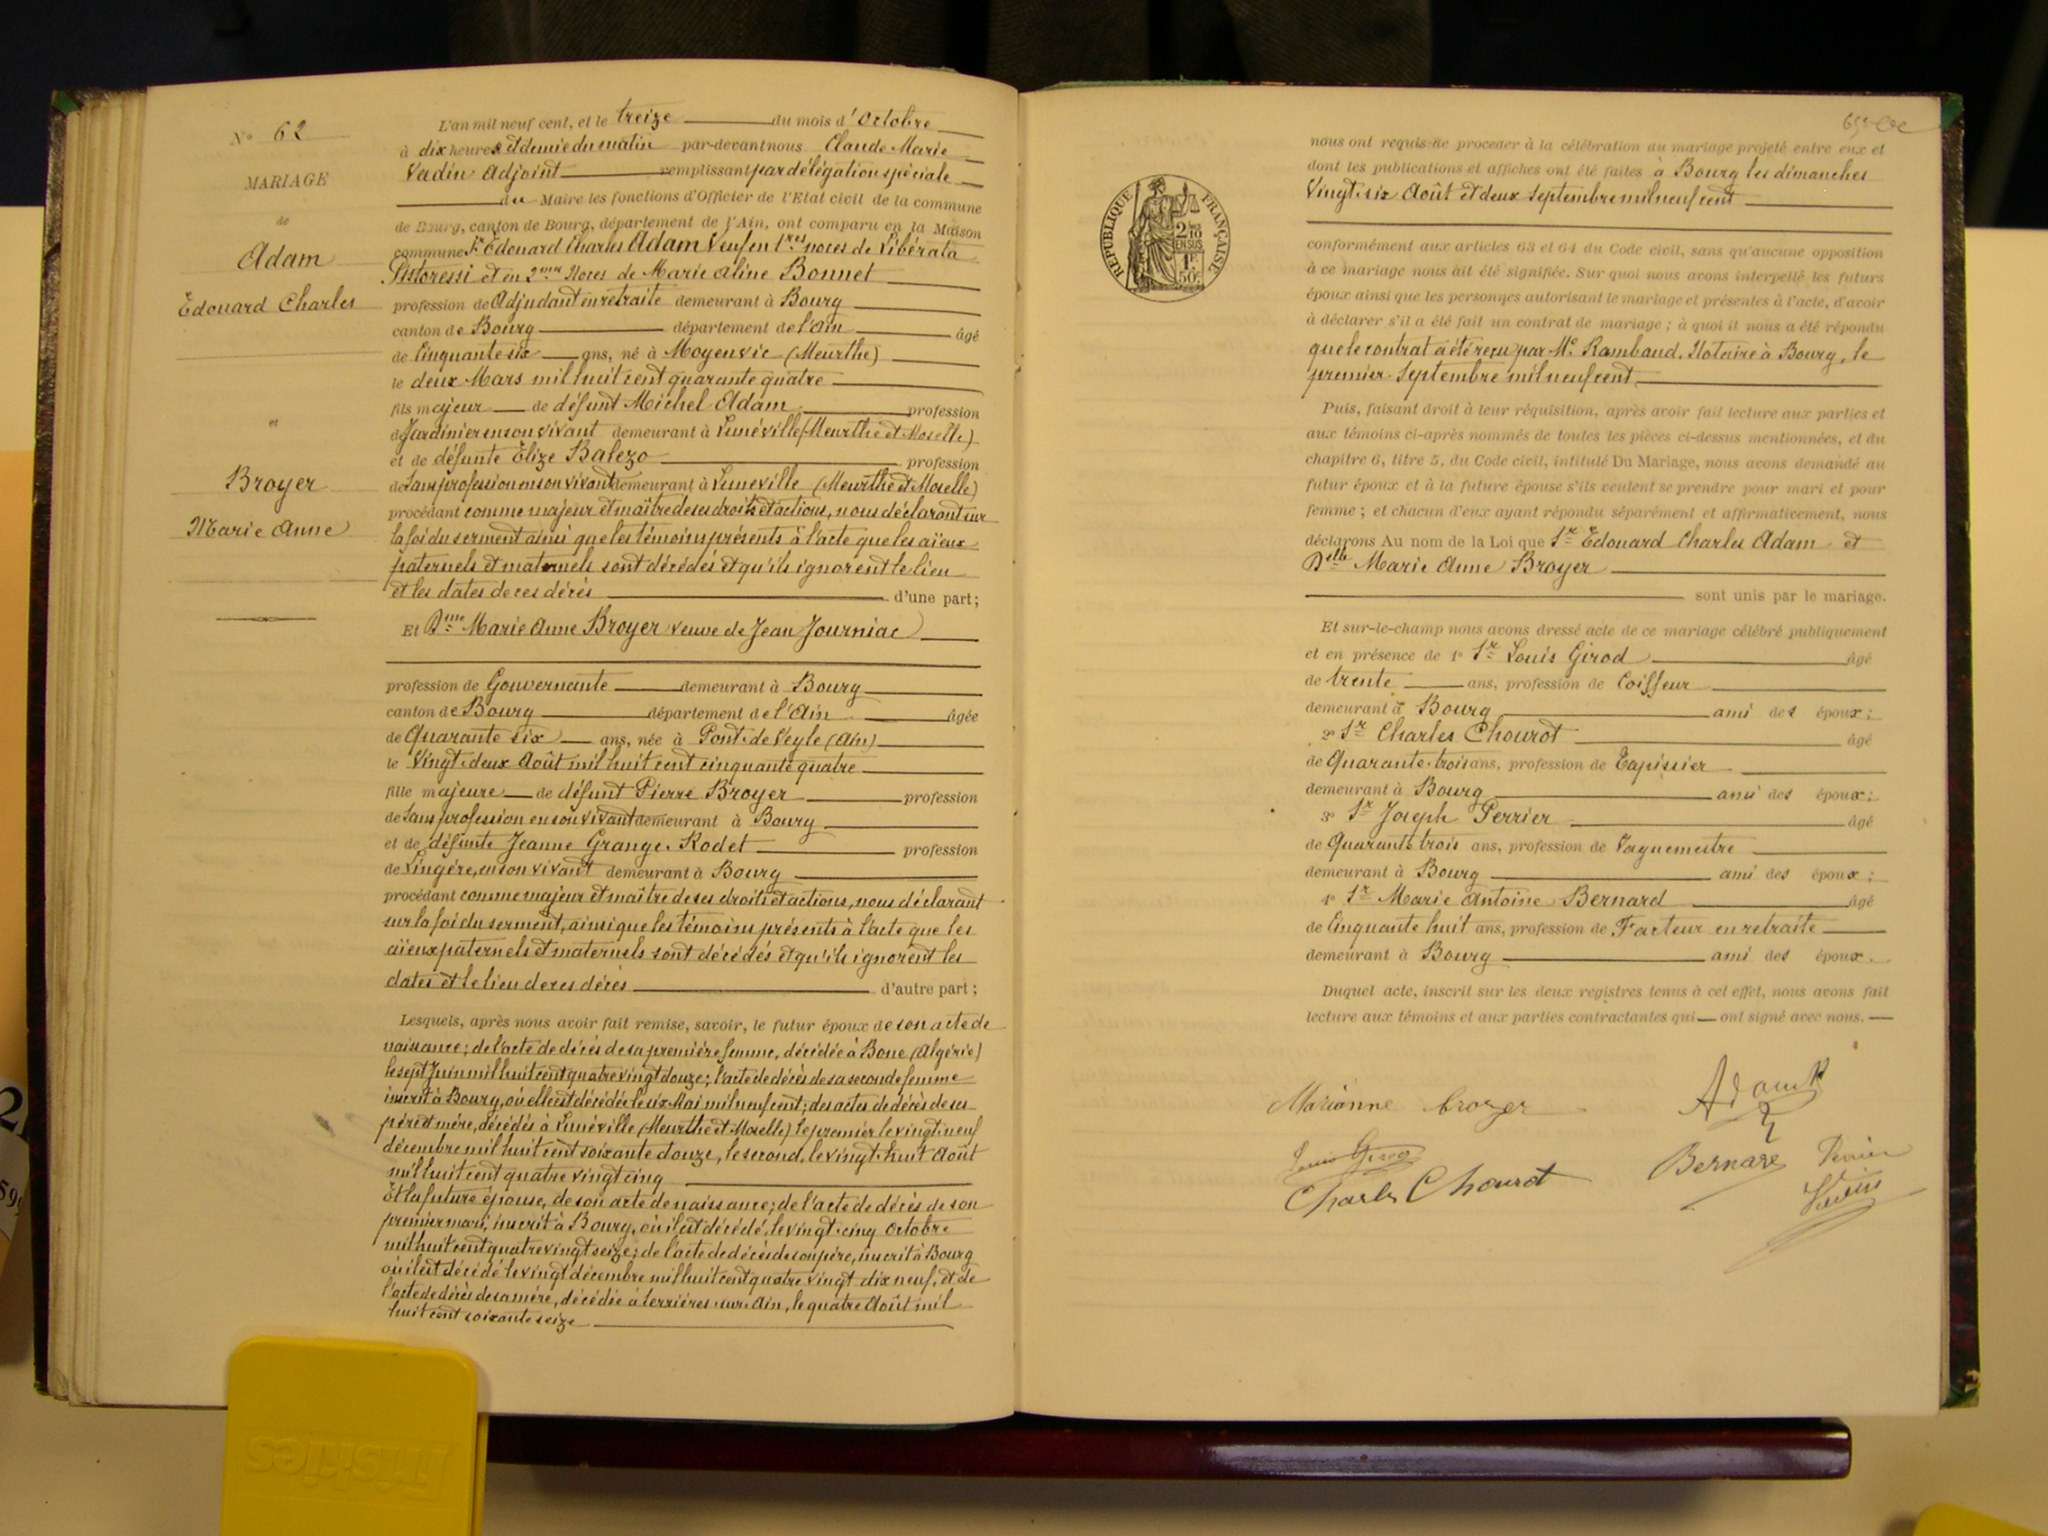 N° 62
MARIAGE
de
Adam
Edouard Charles
et
Broyer
Marie Anne
L'an mil neuf cent, et le treize du mois d'Octobre
à dix heures et demie du matin par-devant nous Claude Marie
Verdin Adjoint remplissant par délégation spéciale
du Maire les fonctions d'Officier de l'Etat civil de la commune
de Bourg, canton de Bourg, département de l'Ain, ont comparu en la Maison
commune Sr Edouard Charles Adam Veuf en 1res noces de Libérata
Pistoressi et en 2mes Noces de Marie Aline Bonnet
profession de Adjudant en retraite demeurant à Bourg
canton de Bourg département de l'Ain âgé
de Cinquante six ans, né à Moyenvic (Meurthe)
le deux Mars mil huit cent quarante quatre
fils majeur de défunt Michel Adam profession
de Jardinier en son vivant demeurant à Lunéville (Meurthe et Moselle)
et de défunte Elize Balezo profession
de Sans profession en son vivant demeurant à Lunéville (Meurthe et Moselle)
procédant comme majeur et maître de ses droits et actions, nous déclarant sur
la foi du serment ainsi que les témoins présents à l'acte que les aïeux
paternels et maternels sont décédés et qu'ils ignorent le lieu
et les dates de ces décès d'une part;
Et Dme Marie Anne Broyer veuve de Jean Journiac
profession de Gouvernante demeurant à Bourg
canton de Bourg département de l'Ain âgée
de Quarante six ans, née à Pont-de-Veyle (Ain)
le Vingt-deux Août mil huit cent cinquante quatre
fille majeure de défunt Pierre Broyer profession
de Sans profession en son vivant demeurant à Bourg
et de défunte Jeanne Grange-Rodet profession
de Lingère, en son vivant demeurant à Bourg
procédant comme majeur et maître de ses droits et actions, nous déclarant
sur la foi du serment, ainsi que les témoins présents à l'acte que les
aïeux paternels et maternels sont décédés et qu'ils ignorent les
dates et le lieu de ces décès d'autre part;
Lesquels, après nous avoir fait remise, savoir, le futur époux de son acte de
naissance; de l'acte de décès de sa première femme, décédée à Bone (Algérie)
le sept Juin mil huit cent quatre vingt douze; l'acte de décès de sa seconde femme
inscrit à Bourg, où elle est décédée le six Mai mil neuf cent; des actes de décès de ses
père et mère, décédés à Lunéville (Meurthe et Moselle) le premier le vingt-neuf
décembre mil huit cent soixante douze, le second, le vingt-huit Août
mil huit cent quatre vingt cinq
Et la future épouse, de son acte de naissance; de l'acte de décès de son
premier mari, inscrit à Bourg, où il est décédé, le vingt-cinq Octobre
mil huit cent quatre vingt seize; de l'acte de décès de son père, inscrit à Bourg
où il est décédé le vingt décembre mil huit cent quatre vingt dix neuf, et de
l'acte de décès de sa mère, décédée à Serrières-sur-Ain, le quatre Août mil
huit cent soixante seize
RÉPUBLIQUE FRANÇAISE
2/10
EN SUS
1F
50c
nous ont requis de procéder à la célébration du mariage projeté entre eux et
dont les publications et affiches ont été faites à Bourg les dimanches
Vingt-six Août et deux Septembre mil neuf cent
conformément aux articles 63 et 64 du Code civil, sans qu'aucune opposition
à ce mariage nous ait été signifiée. Sur quoi nous avons interpellé les futurs
époux ainsi que les personnes autorisant le mariage et présentes à l'acte, d'avoir
à déclarer s'il a été fait un contrat de mariage; à quoi il nous a été répondu
que le contrat a été reçu par Me Rambaud, Notaire à Bourg, le
premier Septembre mil neuf cent
Puis, faisant droit à leur réquisition, après avoir fait lecture aux parties et
aux témoins ci-après nommés de toutes les pièces ci-dessus mentionnées, et du
chapitre 6, titre 5, du Code civil, intitulé Du Mariage, nous avons demandé au
futur époux et à la future épouse s'ils veulent se prendre pour mari et pour
femme; et chacun d'eux ayant répondu séparément et affirmativement, nous
déclarons Au nom de la Loi que Sr Edouard Charles Adam et
Delle Marie Anne Broyer
sont unis par le mariage.
Et sur-le-champ nous avons dressé acte de ce mariage célébré publiquement
et en présence de 1° Sr Louis Girod âgé
de trente ans, profession de Coiffeur
demeurant à Bourg ami des époux;
2° Sr Charles Chourot âgé
de Quarante-trois ans, profession de Tapissier
demeurant à Bourg ami des époux;
3° Sr Joseph Perrier âgé
de Quarante trois ans, profession de Vaguemestre
demeurant à Bourg ami des époux;
4° Sr Marie Antoine Bernard âgé
de Cinquante huit ans, profession de Facteur en retraite
demeurant à Bourg ami des époux.
Duquel acte, inscrit sur les deux registres tenus à cet effet, nous avons fait
lecture aux témoins et aux parties contractantes qui ont signé avec nous.
Marianne broyer
Adam
Louis Girod
Bernard
Perrier
Charles Chourot
Verdin